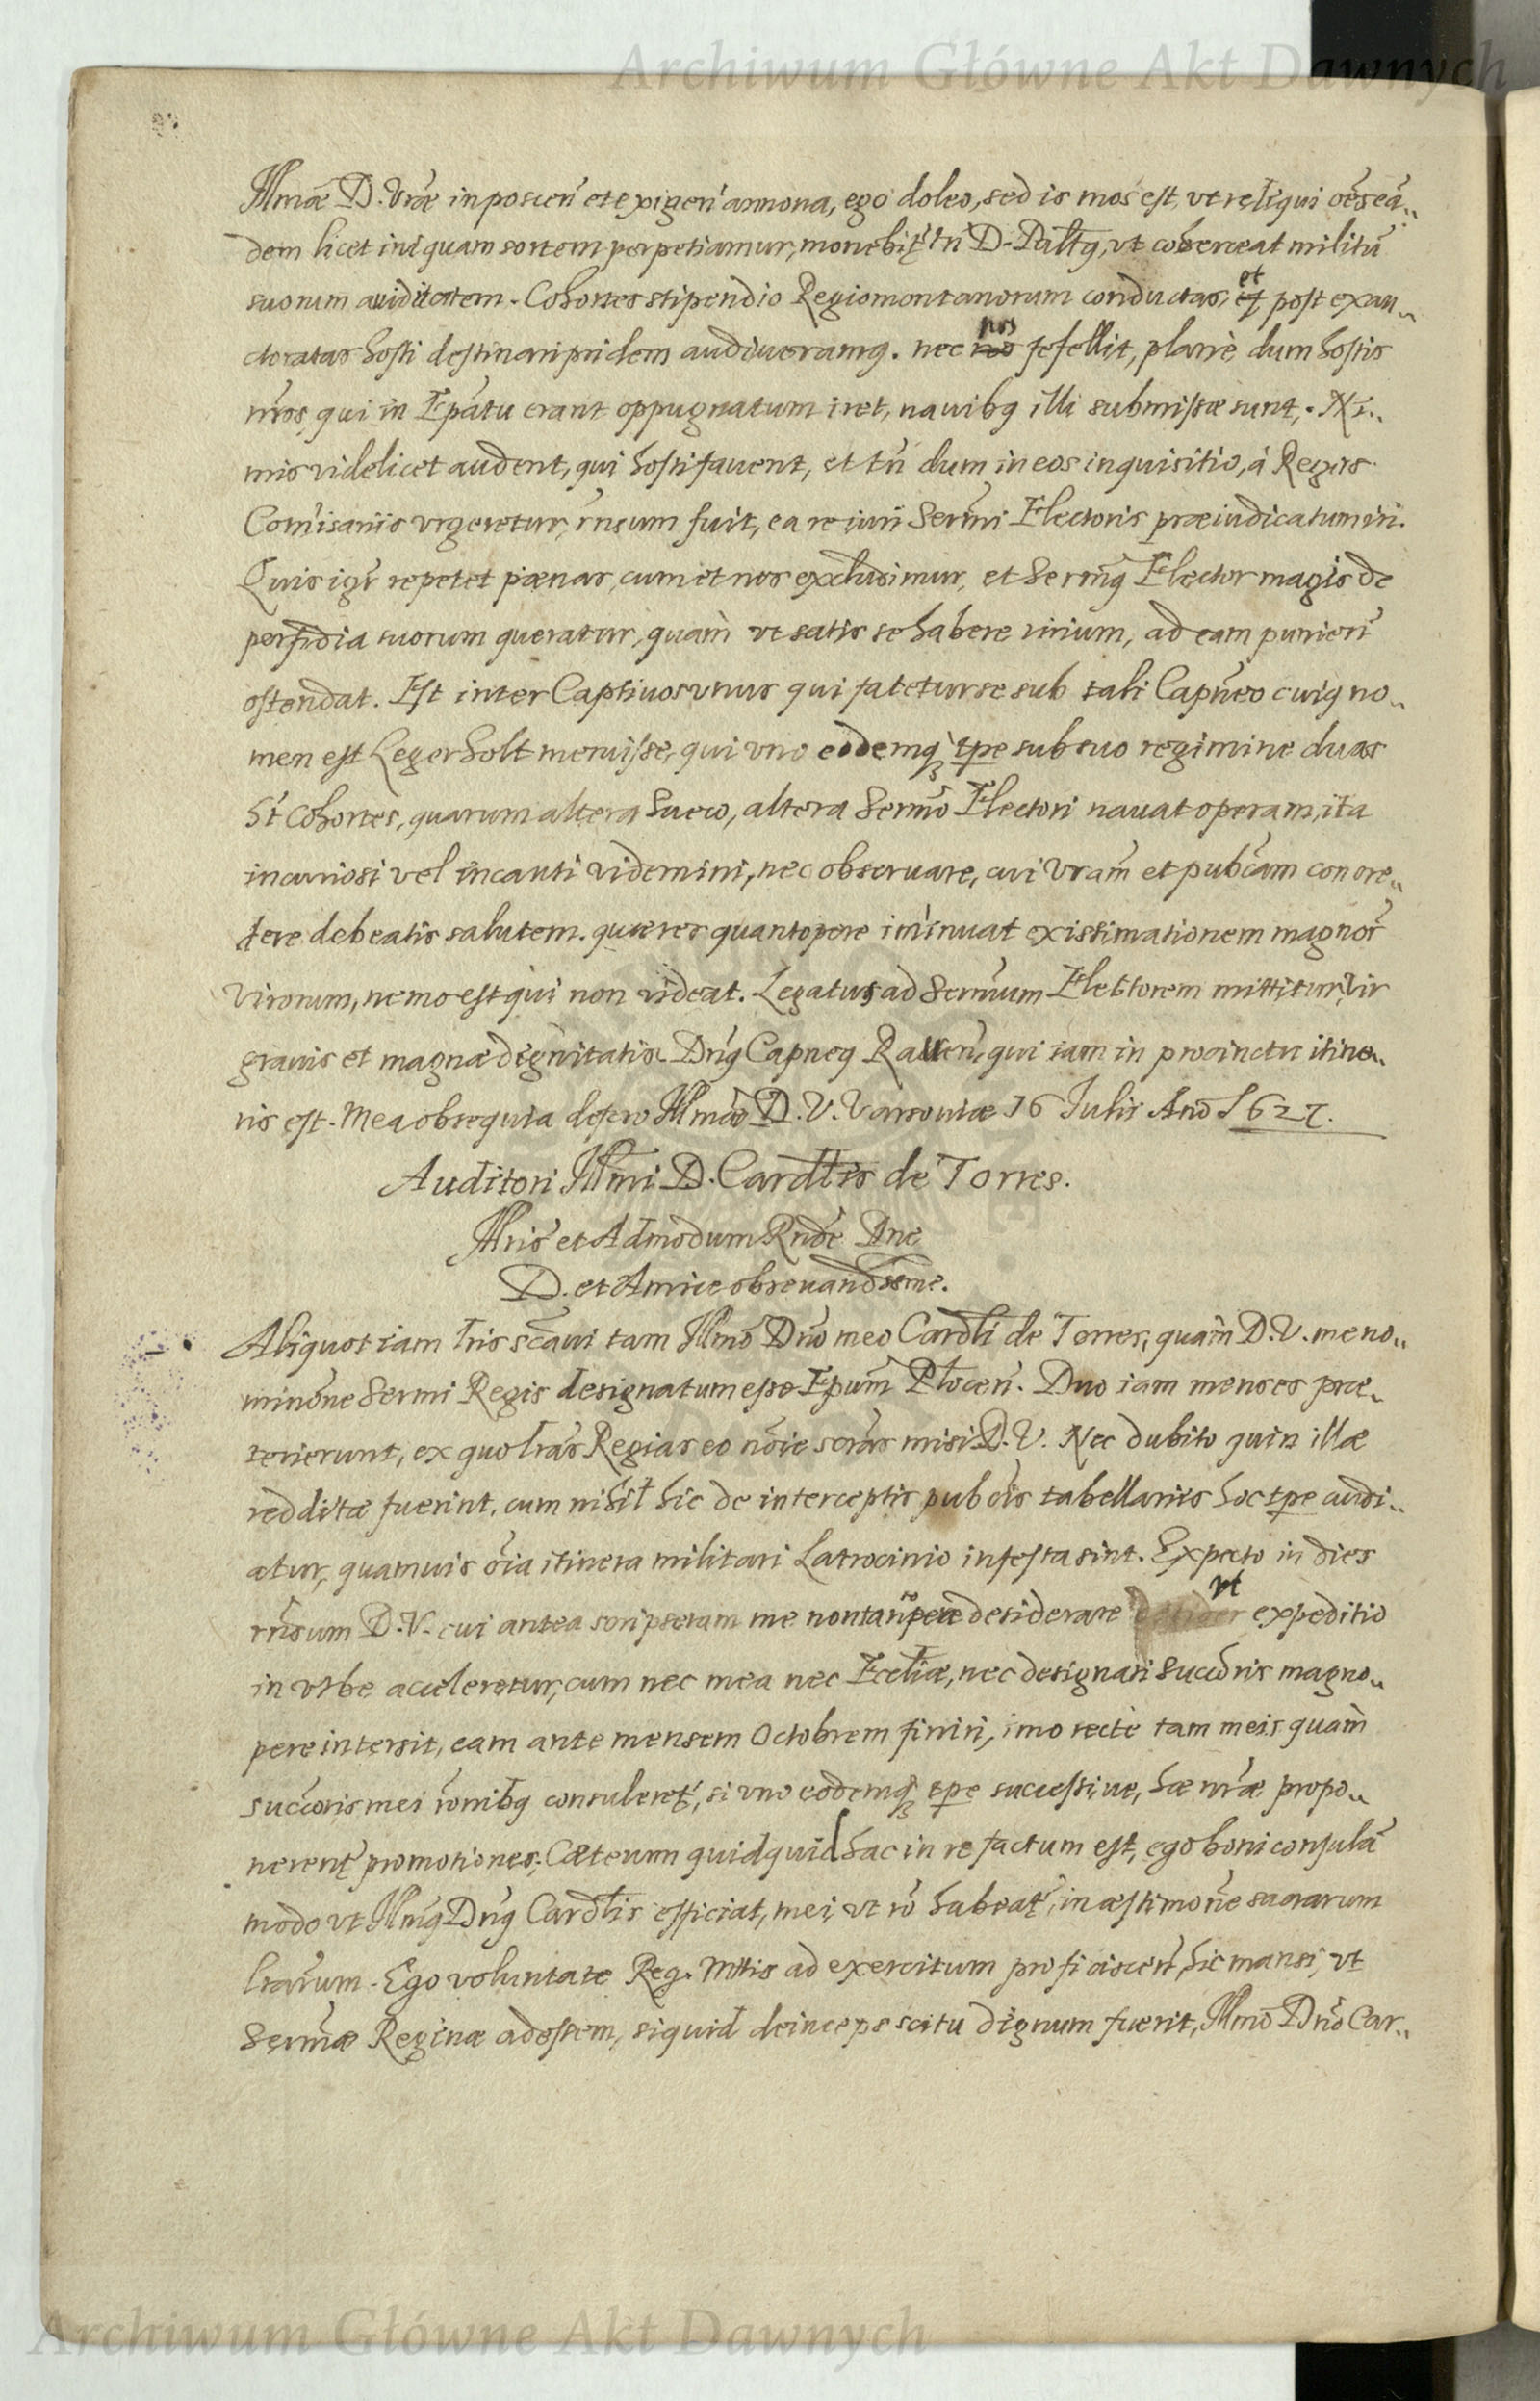 Archiwum Główne Akt Dawnych
Illmæ D. Vræ in poscen̄ et exigen̄ annona, ego doleo, sed is mos est, vt reliqui oēs eā„
dem licet iniquam sortem perpetiamur, monebit̃ tñ D. Paltq, vt coherceat militū
suorum auiditatem. Cohortes stipendio Regiomontanorum conductas, et post exau„
ctoratas hosti destinari pridem audiueramq. nec nos fefellit, planè, dum hostis
nr̄os, qui in Ep̄atu erant oppugnatum iret, nauibq illi submissæ sunt. Ni„
mis videlicet audent, qui hosti fauent, et tñ dum in eos inquisitio, à Regiis
Com̄isariis vrgeretur, rn̄sum fuit, ea re iuri Serm̄i Electoris præiudicatum iri.
Quis igr̄ repetet pænas, cum et nos excludimur, et Serm̄q Elector magis de
perfidia suorum queratur, quàm vt satis se habere virium, ad eam punien̄
ostendat. Est inter Captiuos vnus qui fatetur se sub tali Capn̄eo cuiq no„
men est Legerholt meruisse, qui vno eodemq̃ tpe sub suo regimine duas
ht̄ Cohortes, quarum altera Sueco, altera Serm̄o Electori nauat operam, ita
incuriosi vel incauti videmini, nec obseruare, cui Vram̄ et pub̄cam con cre„
dere debeatis salutem. quæ res quantopere im̄inuat existimationem magnor̄
virorum, nemo est qui non videat. Legatus ad Sermum Electorem mittitur, vir
grauis et magnæ dignitatis Dn̄q Capneq Rauen̄, qui iam in procinctu itine„
ris est. Mea obsequia defero Illmæ D. V. Varsouiæ 16 Julii Anō 1627.
Auditori Illm̄i D. Cardl̄is de Torres.
Illris̄ et Admodum Rnd̄e Dn̄e
D. et Amice obseruandissme.
Aliquot iam lr̄is sc̄aui tam Illmō Dn̄o meo Cardl̄i de Torres, quàm D. V. me no„
minōne Sermi Regis designatum esse Ep̄um Ploceñ. Duo iam menses præ„
terierunt, ex quo lr̄as Regias eo nōie scr̄as misi D. V. Nec dubito quin illæ
redditæ fuerint, cum nihil hic de interceptis pubc̄is tabellariis hoc tpe audi„
atur, quamuis oīa itinera militari Latrocinio infesta sint. Expecto in dies
rn̄sum D. V. cui antea scripseram me non tanto pere desiderare vt expeditio
in vrbe acceleretur, cum nec mea nec Eccliæ, nec designati Succōris magno„
pere intersit, eam ante mensem Octobrem finiri, imo rectè tam meis quàm
succōris mei rōnibq consuleret̃, si vno eodemq̃ tpe successiue, hæ nr̄æ propo„
nerent̃ promotiones, Cæterum quidquid hac in re factum est, ego boni consulā
modo vt Illmq Dn̄q Cardlis efficiat, mei, vt rō habeat̃, in æstimōne sacrarum
lrarum. Ego voluntate Reg. Mttis ad exercitum proficiscen̄, hic mansi, vt
Sermæ Reginæ adessem, siquid deinceps scitu dignum fuerit, Illmō Dn̄o Car„
Archiwum Główne Akt Dawnych